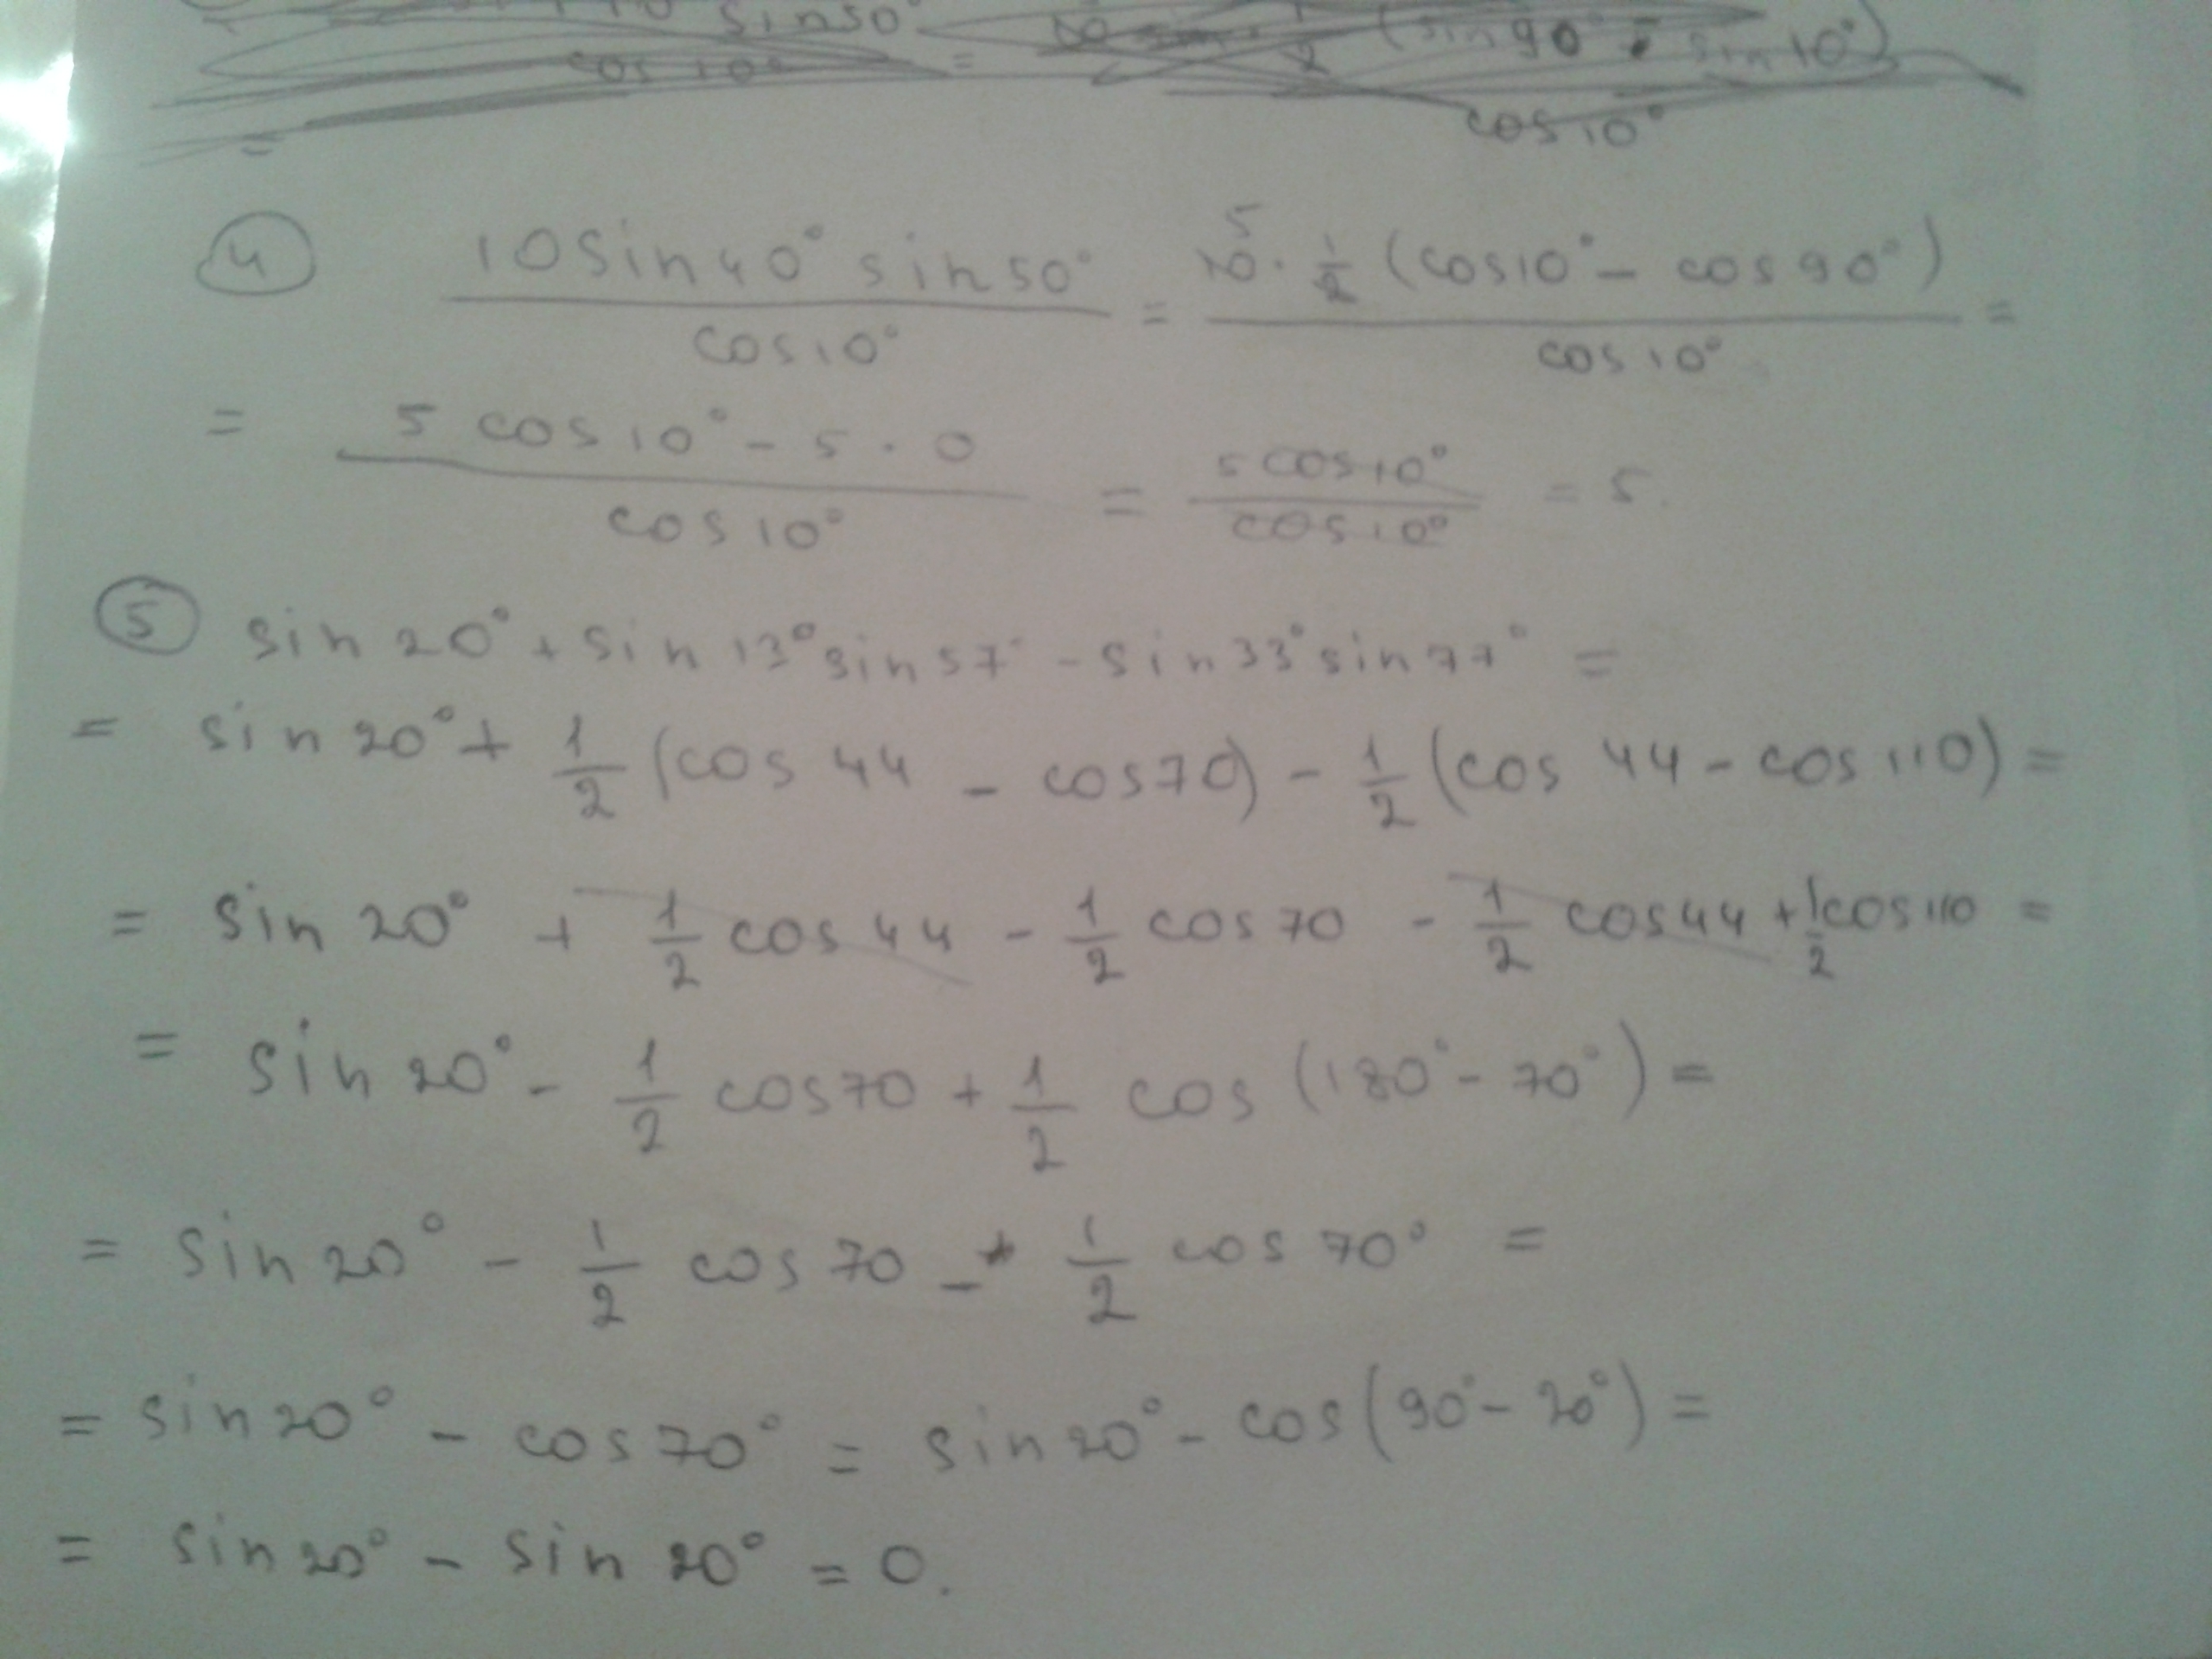 sin50°
cos10° = 1/2 (sin90° - sin10°)
cos10°
=
④ 10sin40° sin50° / cos10° = 10^5 · 1/2 (cos10° - cos90°) / cos10° =
= 5 cos10° - 5 · 0 / cos10° = 5cos10° / cos10° = 5.
⑤ sin20° + sin13° sin57° - sin33° sin77° =
= sin20° + 1/2 (cos 44 - cos70) - 1/2 (cos 44 - cos 110) =
= sin 20° + 1/2 cos 44 - 1/2 cos 70 - 1/2 cos44 + 1/2 cos110 =
= sin20° - 1/2 cos70 + 1/2 cos (180° - 70°) =
= sin20° - 1/2 cos 70 - 1/2 cos 70° =
= sin20° - cos70° = sin20° - cos(90° - 20°) =
= sin20° - sin 20° = 0.